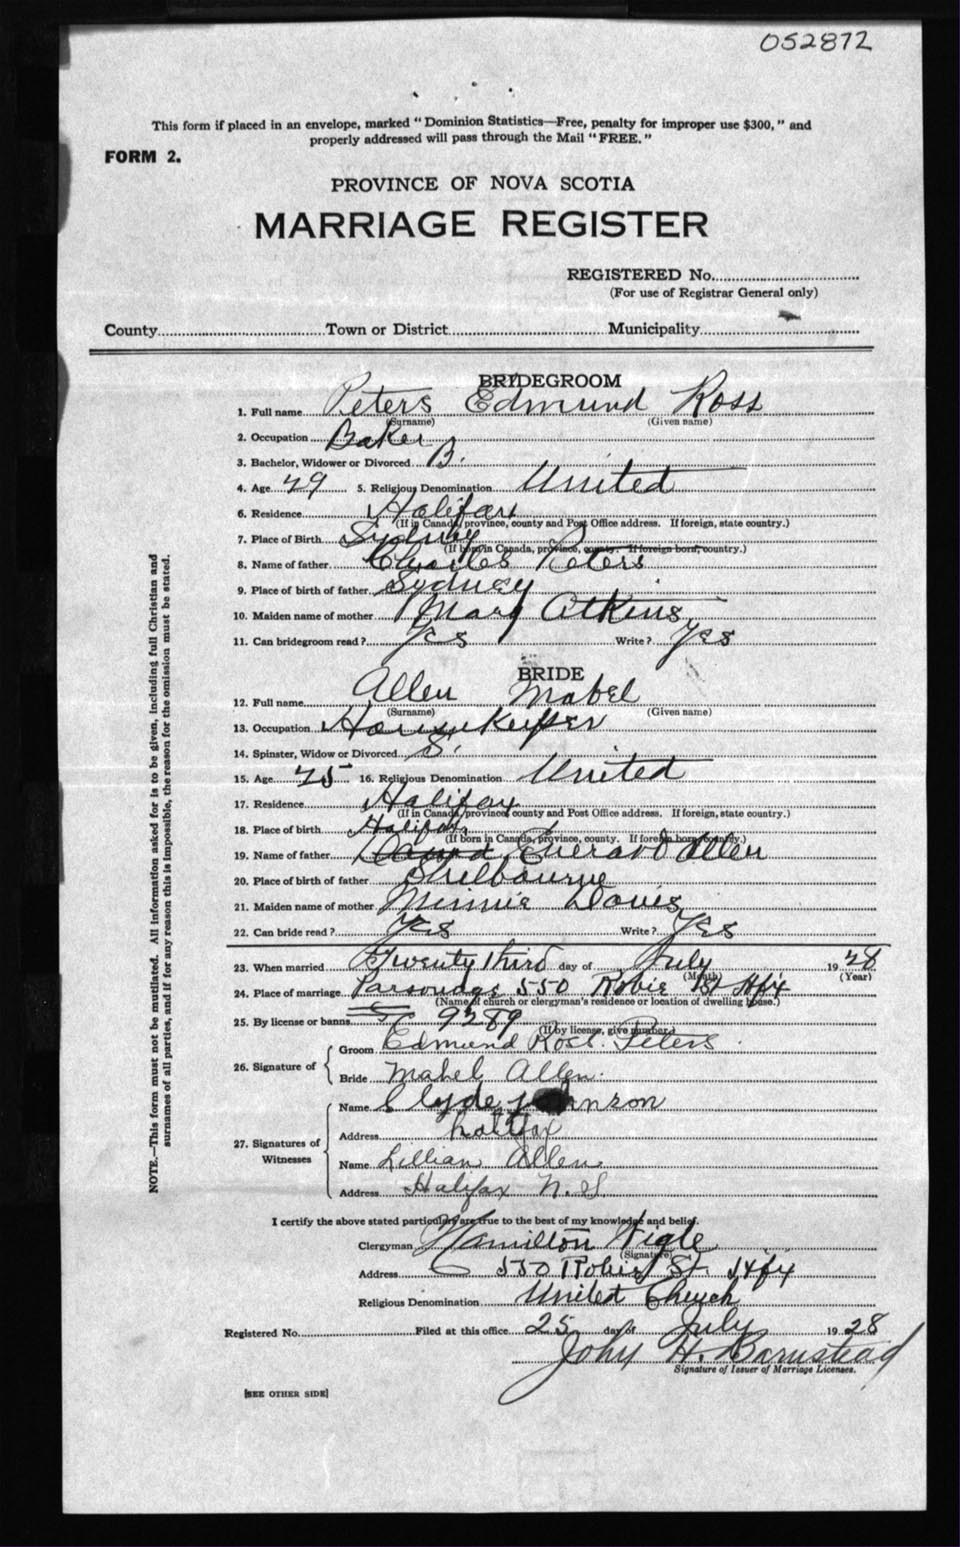 052872
This form if placed in an envelope, marked "Dominion Statistics—Free, penalty for improper use $300," and
properly addressed will pass through the Mail "FREE."
FORM 2.
PROVINCE OF NOVA SCOTIA
MARRIAGE REGISTER
REGISTERED No.
(For use of Registrar General only)
County Town or District Municipality
BRIDEGROOM
1. Full name Peters Edmund Ross
(Surname) (Given name)
2. Occupation Baker
3. Bachelor, Widower or Divorced B.
4. Age 29 5. Religious Denomination United
6. Residence Halifax
(If in Canada, province, county and Post Office address. If foreign, state country.)
7. Place of Birth Sydney
(If born in Canada, province, county. If foreign born, country.)
8. Name of father Charles Peters
9. Place of birth of father Sydney
10. Maiden name of mother Mary Atkins
11. Can bridegroom read? Yes Write? Yes
BRIDE
12. Full name Allen Mabel
(Surname) (Given name)
13. Occupation Housekeeper
14. Spinster, Widow or Divorced S.
15. Age 25 16. Religious Denomination United
17. Residence Halifax
(If in Canada, province, county and Post Office address. If foreign, state country.)
18. Place of birth Halifax
(If born in Canada, province, county. If foreign born, country.)
19. Name of father Allen
20. Place of birth of father Shelbourne
21. Maiden name of mother Minnie Davis
22. Can bride read? Yes Write? Yes
23. When married Twenty third day of July 1928
(Month) (Year)
24. Place of marriage Parsonage 550 Robie St Hfx
(Name of church or clergyman's residence or location of dwelling house.)
25. By license or banns 9289
(If by license, give number.)
26. Signature of
Groom Edmund Ross Peters
Bride Mabel Allen
27. Signatures of Witnesses
Name Clyde Johnson
Address halifax
Name Lillian Allen
Address Halifax N.S.
I certify the above stated particulars are true to the best of my knowledge and belief.
Clergyman Hamilton Wigle
(Signature)
Address 550 Robie St. Hfx
Religious Denomination United Church
Registered No. Filed at this office 25 day of July 1928
John H. Barnstead
Signature of Issuer of Marriage Licenses.
[SEE OTHER SIDE]
NOTE.—This form must not be mutilated. All information asked for is to be given, including full Christian and
surnames of all parties, and if for any reason this is impossible, the reason for the omission must be stated.